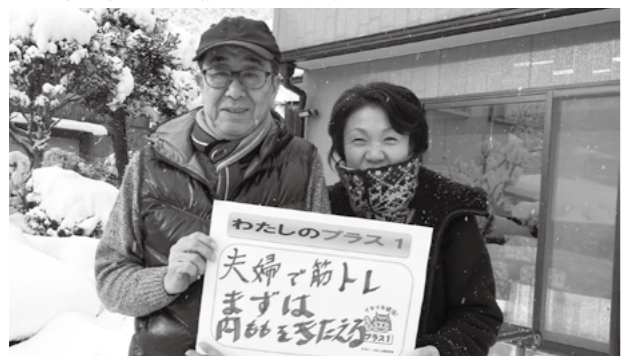 わたしのプラス1
夫婦で筋トレ
まずは
内ももをきたえる
プラス1